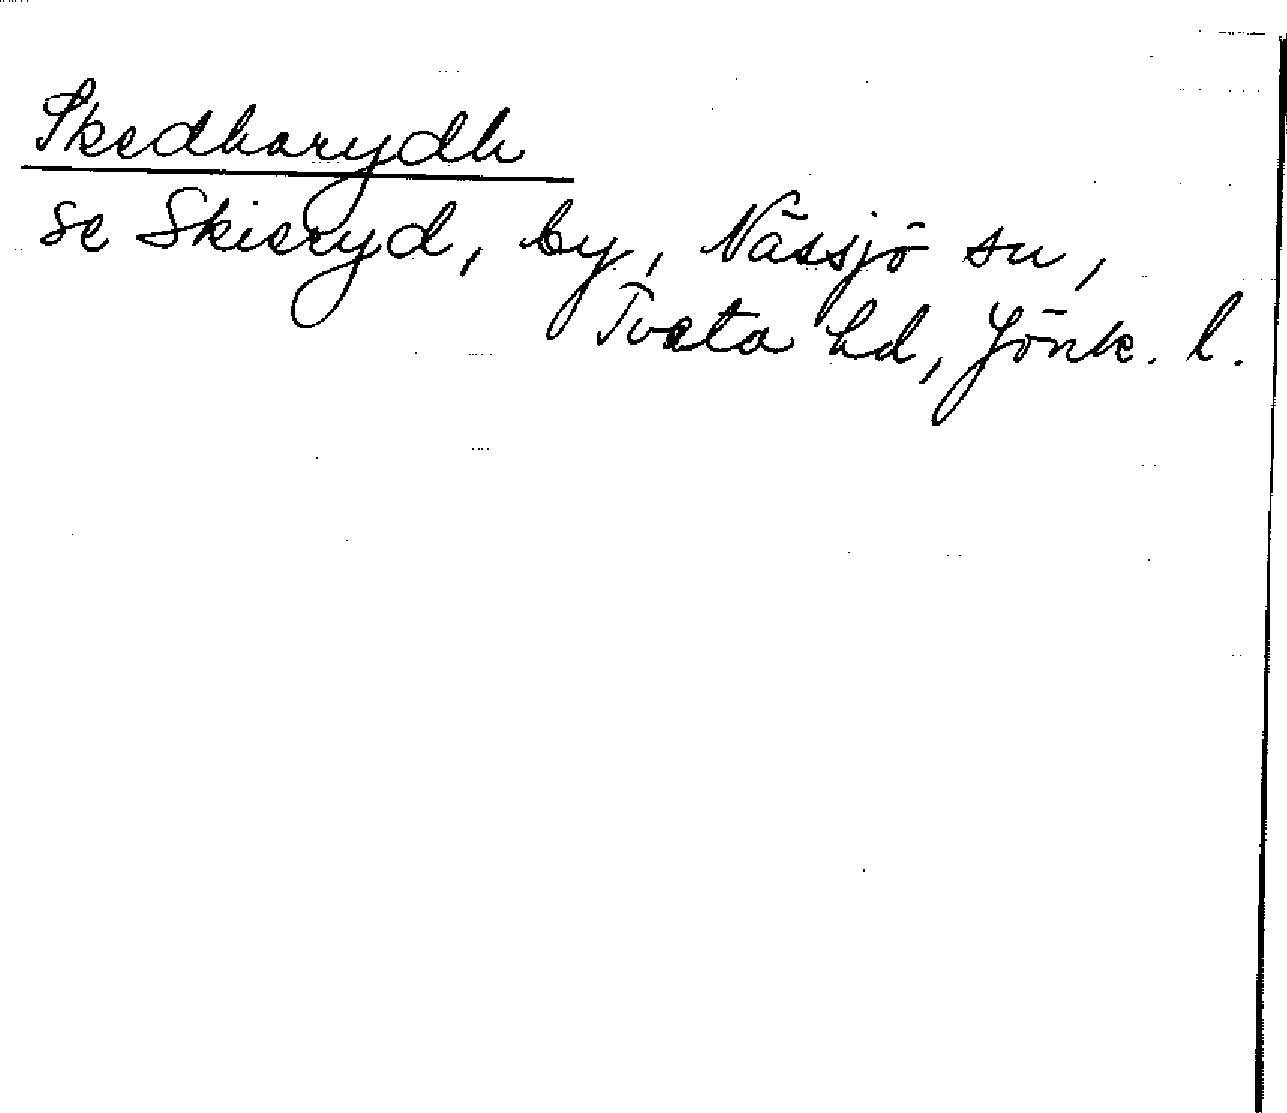 Skedharydh
se Skieryd, by, Nässjö sn,
Tveta hd, Jönk. l.